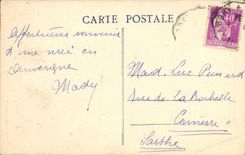 CARTE POSTALE
Affectueux souvenir
d'une virée en
Auvergne
Mady
Mad. Luc
rue de la Rochelle
Sarthe
40